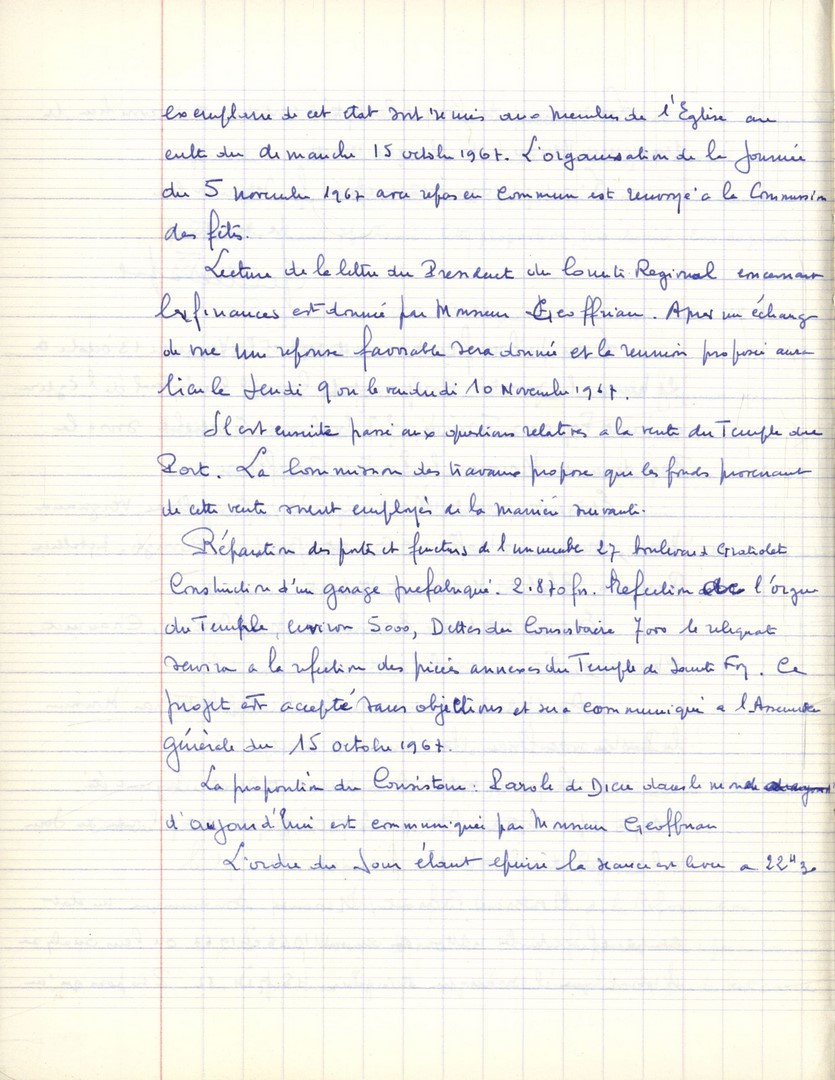 exemplaire de cet état sont remis aux Membres de l'Eglise au
culte du dimanche 15 octobre 1967. L'organisation de la Journée
du 5 novembre 1967 avec repas en commun est renvoyé à la Commission
des fêtes.
Lecture de la lettre du President du Comité Regional concernant
les finances est donnée par Monsieur Geoffriau. Apres un échange
de vue une reponse favorable sera donnée et la reunion proposée aura
lieu le Jeudi 9 ou le vendredi 10 Novembre 1967.
Il est ensuite passé aux questions relatives a la vente du Temple du
Port. La Commission des travaux propose que les fonds provenant
de cette vente soient employés de la manière suivante.
Réparation des portes et fenetres de l'immeuble 27 boulevard
Construction d'un garage prefabriqué. 2.870 frs. Refection de l'orgue
du Temple, environ 5000, Dettes du Consistoire 7000 le reliquat
servira a la refection des pièces annexes du Temple de Sainte Foy. Ce
projet est accepté sans objections et sera communiqué a l'Assemblée
générale du 15 octobre 1967.
La proposition du Consistoire : Parole de Dieu dans le monde
d'aujourd'hui est communiquée par Monsieur Geoffriau
L'ordre du Jour étant épuisé la séance est levée a 22H30